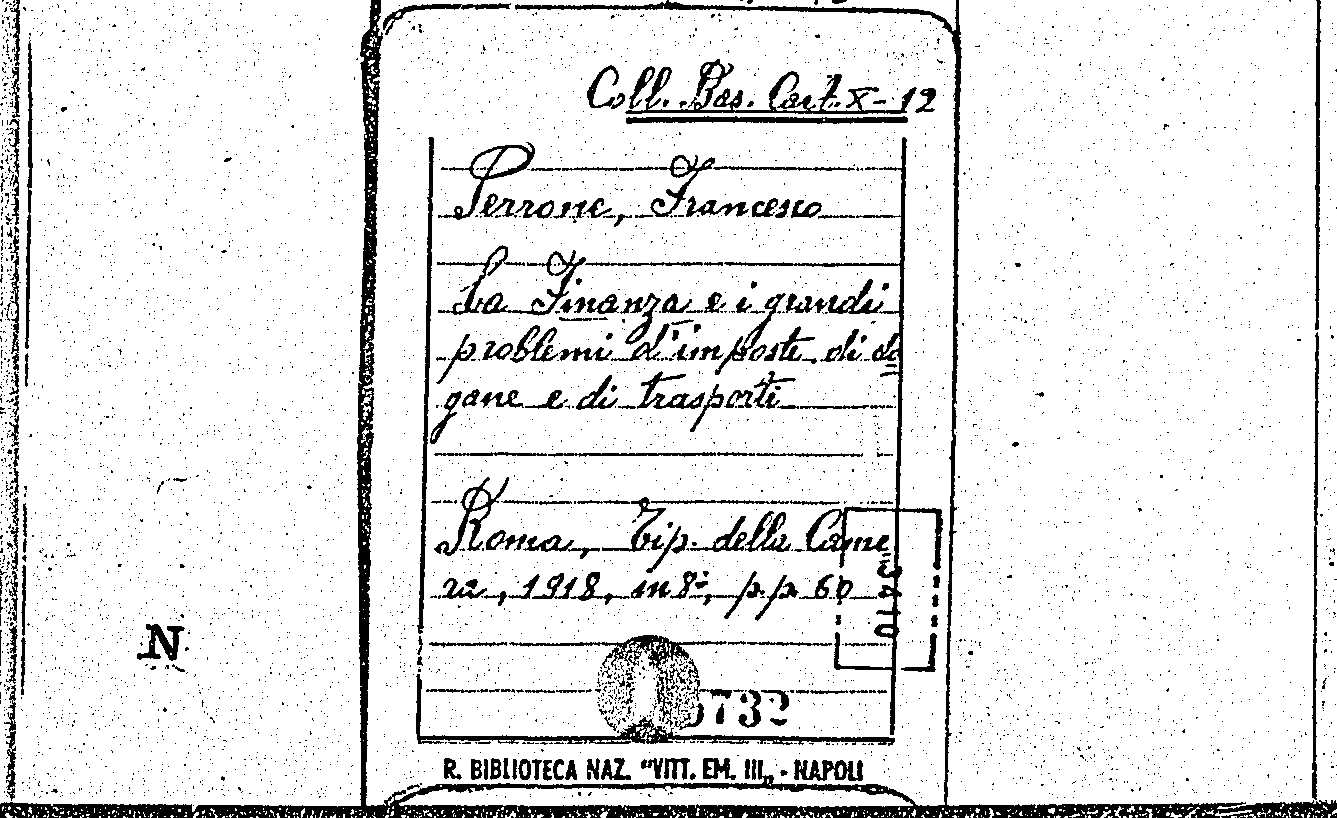 Coll. Bas. Cart. X-12
Perrone, Francesco
La Finanza e i grandi
problemi d'imposte di do
gane e di trasporti
Roma, Tip. della Came
ra, 1918, in 8º, pp 60
732
N
R. BIBLIOTECA NAZ. "VITT. EM. III„ - NAPOLI